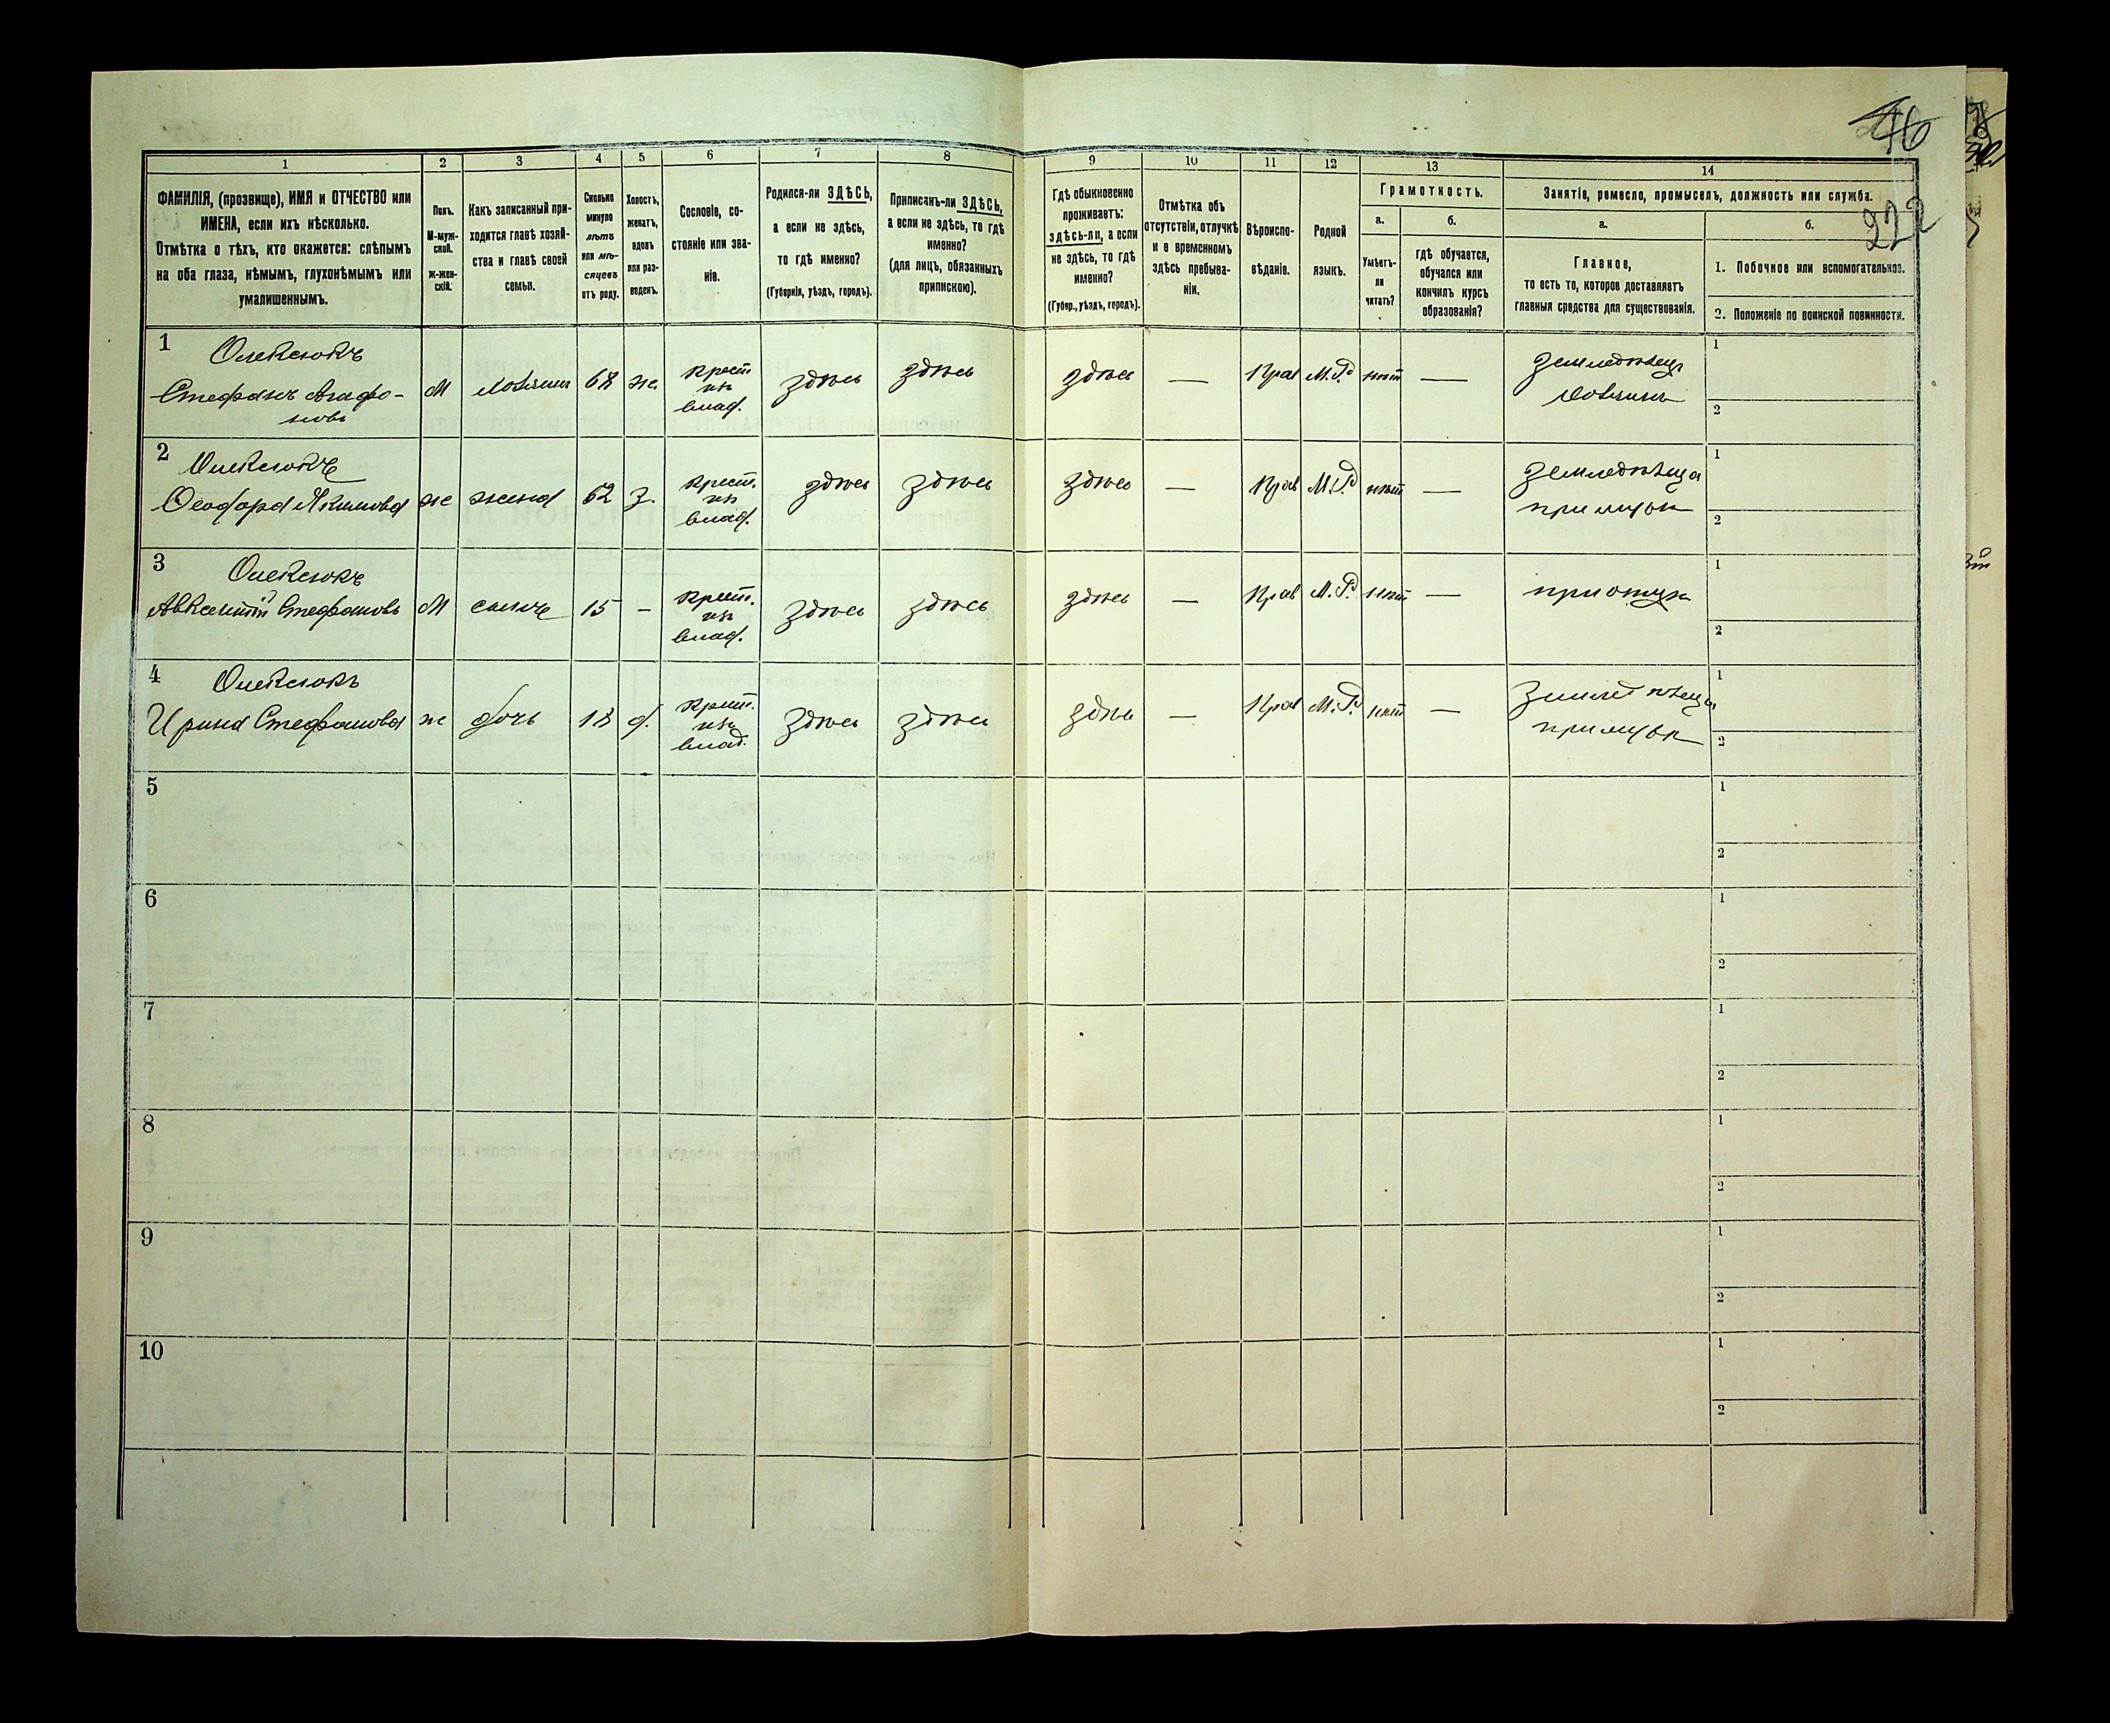 46
222
1
2
3
4
5
6
7
8
9
10
11
12
13
14
ФАМИЛІЯ, (прозвище), ИМЯ и ОТЧЕСТВО или
ИМЕНА, если ихъ нѣсколько.
Отмѣтка о тѣхъ, кто окажется: слѣпымъ
на оба глаза, нѣмымъ, глухонѣмымъ или
умалишеннымъ.
Полъ.
М-муж-
ской.
Ж-жен-
скій.
Какъ записанный при-
ходится главѣ хозяй-
ства и главѣ своей
семьи.
Сколько
минуло
лѣтъ
или мѣ-
сяцевъ
отъ роду.
Холостъ,
женатъ,
вдовъ
или раз-
веденъ.
Сословіе, со-
стояніе или зва-
ніе.
Родился-ли ЗДѢСЬ,
а если не здѣсь,
то гдѣ именно?
(Губернія, уѣздъ, городъ).
Приписанъ-ли ЗДѢСЬ,
а если не здѣсь, то гдѣ
именно?
(для лицъ, обязанныхъ
припискою).
Гдѣ обыкновенно
проживаетъ:
здѣсь-ли, а если
не здѣсь, то гдѣ
именно?
(Губер., уѣздъ, городъ).
Отмѣтка объ
отсутствіи, отлучкѣ
и о временномъ
здѣсь пребыва-
ніи.
Вѣроиспо-
вѣданіе.
Родной
языкъ.
Грамотность.
а.
Умѣетъ-
ли
читать?
б.
гдѣ обучается,
обучался или
кончилъ курсъ
образованія?
Занятіе, ремесло, промыселъ, должность или служба.
а.
Главное,
то есть то, которое доставляетъ
главныя средства для существованія.
б.
1. Побочное или вспомогательное.
2. Положеніе по воинской повинности.
1
Олексюкъ
Стефанъ Агафо-
новъ
М
хозяинъ
68
ж.
крест
изъ
влад.
здѣсь
здѣсь
здѣсь
—
Прав
М.Р.
нѣт
—
земледѣлецъ
хозяинъ
1
2
2
Олексюкъ
Феодора Якимова
ж
жена
62
з.
крест.
изъ
влад.
здѣсь
здѣсь
здѣсь
—
Прав
М.Р.
нѣт
—
земледѣлца
при мужѣ
1
2
3
Олексюкъ
Авксентій Стефановъ
М
сынъ
15
-
крест.
изъ
влад.
здѣсь
здѣсь
здѣсь
—
Прав
М.Р.
нѣт
—
при отцѣ
1
2
4
Олексюкъ
Ирина Стефанова
ж
дочь
18
д.
крест.
изъ
влад.
здѣсь
здѣсь
здѣсь
—
Прав
М.Р.
нѣт
—
1
2
5
1
2
6
1
2
7
1
2
8
1
2
9
1
2
10
1
2